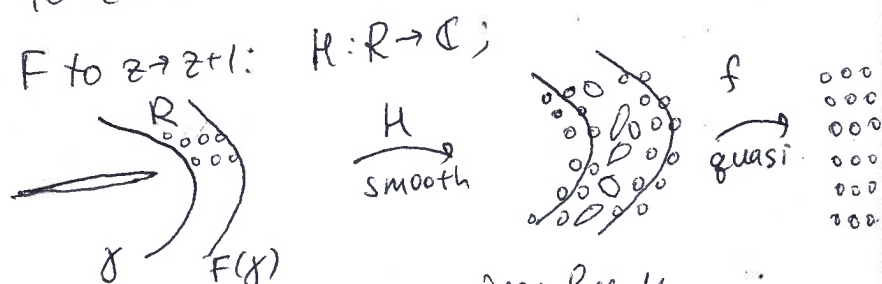 F to z→z+1: H:R→ℂ;
R
H
smooth
f
quasi.
γ F(γ)